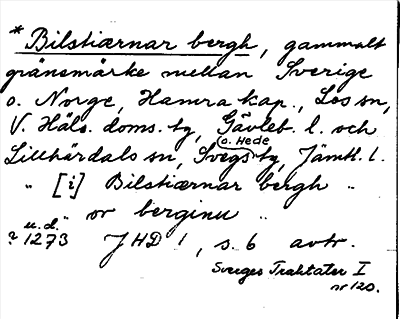 * Bilstiærnar bergh, gammalt
gränsmärke mellan Sverige
o. Norge, Hamra kap., Los sn,
V. Häls. doms. tg, Gävleb. l. och
o. Hede
Lillhärdals sn, Svegs tg, Jämtl. l.
" [i] Bilstiærnar bergh "
" or berginu "
u.d.
? 1273 JHD 1, s. 6 avtr.
Sveriges Traktater I
nr 120.